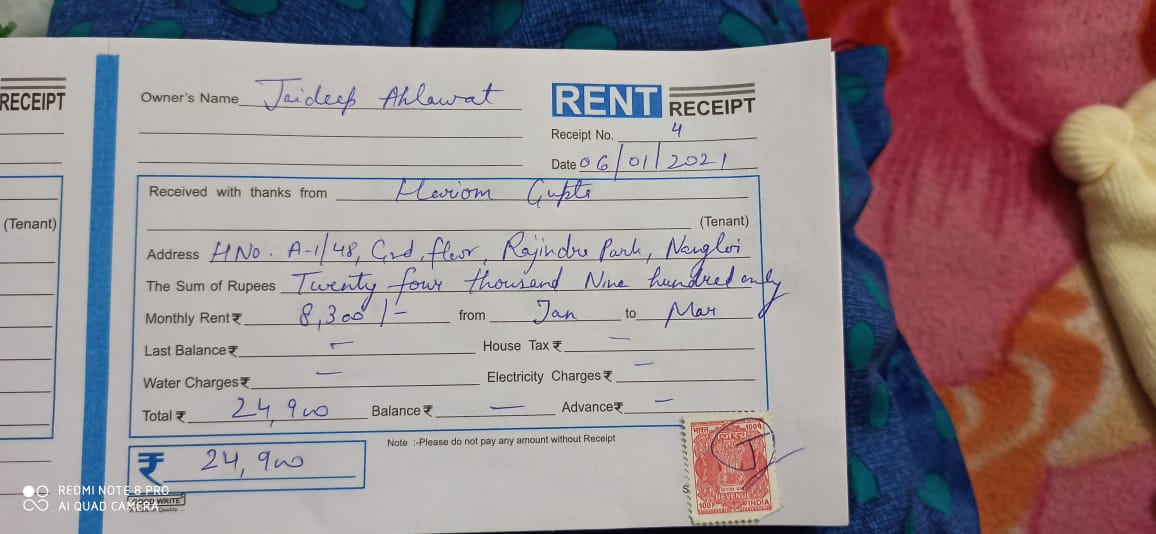 RECEIPT
(Tenant)
Owner's Name Jaideep Ahlawat
RENT RECEIPT
Receipt No. 4
Date 06/01/2021
Received with thanks from Hariom Gupta
(Tenant)
Address HNo. A-1/48, Grd. floor, Rajindra Park, Nangloi
The Sum of Rupees Twenty four thousand Nine hundred only
Monthly Rent ₹ 8,300/- from Jan to Mar
Last Balance ₹ - House Tax ₹ -
Water Charges ₹ - Electricity Charges ₹ -
Total ₹ 24,900 Balance ₹ - Advance ₹ -
Note :-Please do not pay any amount without Receipt
₹ 24,900
GOOD WRITE
भारत 100P
REVENUE
100P INDIA
REDMI NOTE 8 PRO
AI QUAD CAMERA